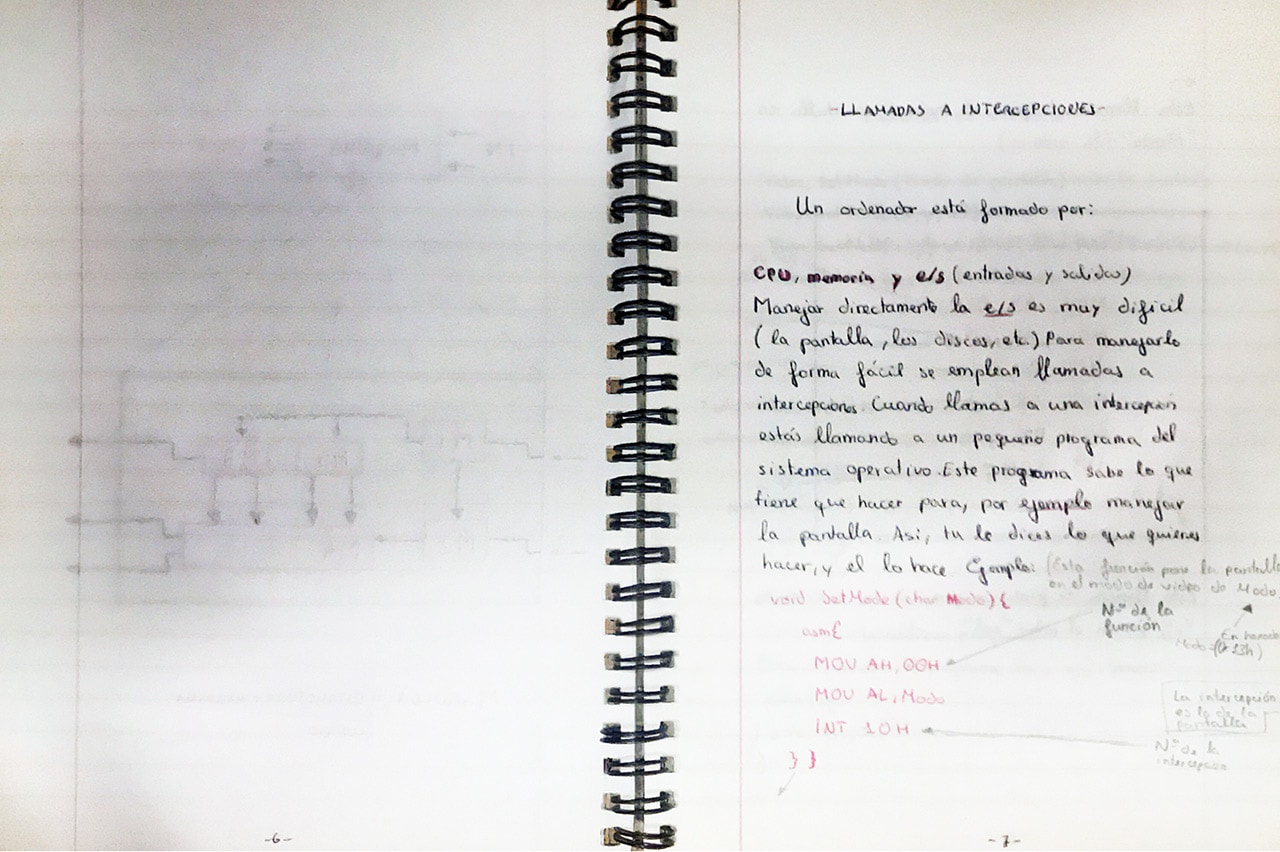 -LLAMADAS A INTERCEPCIONES-
Un ordenador está formado por:
CPU, memoria y e/s (entradas y salidas)
Manejar directamente la e/s es muy dificil
(la pantalla, los discos, etc.) Para manejarlo
de forma fácil se emplean llamadas a
intercepciones. Cuando llamas a una intercepción
estás llamando a un pequeño programa del
sistema operativo. Este programa sabe lo que
tiene que hacer para, por ejemplo manejar
la pantalla Asi, tu le dices lo que quieres
hacer, y el lo hace Ejemplo: (Esta función pone la pantalla
en el modo de video de Modo
void SetMode (char Modo) {
Nº de la
función
En
Modo=(0-13h)
asm{
MOV AH, 00H
MOV AL, Modo
La intercepción
es la de la
pantalla
INT 10H
Nº de la
} }
-6-
-7-